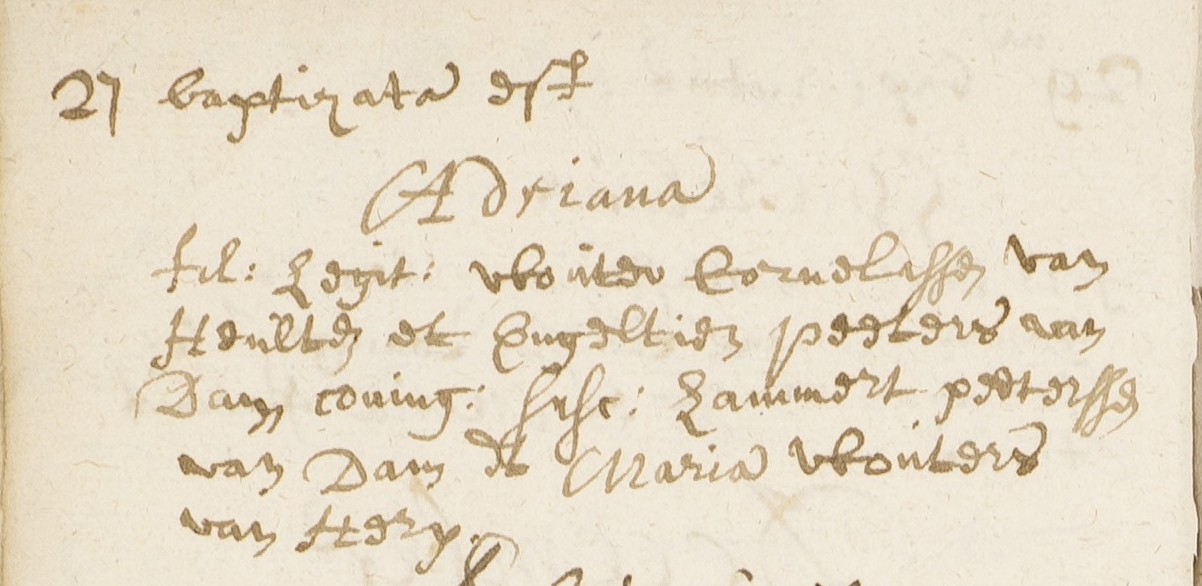 27 baptizata est
Adriana
fil: Legit: wouter Cornelissen van
Heulten et Engeltien peeters van
Dam coniug: susc: Lammert peeterssen
van Dam et Maria wouters
van Herp.